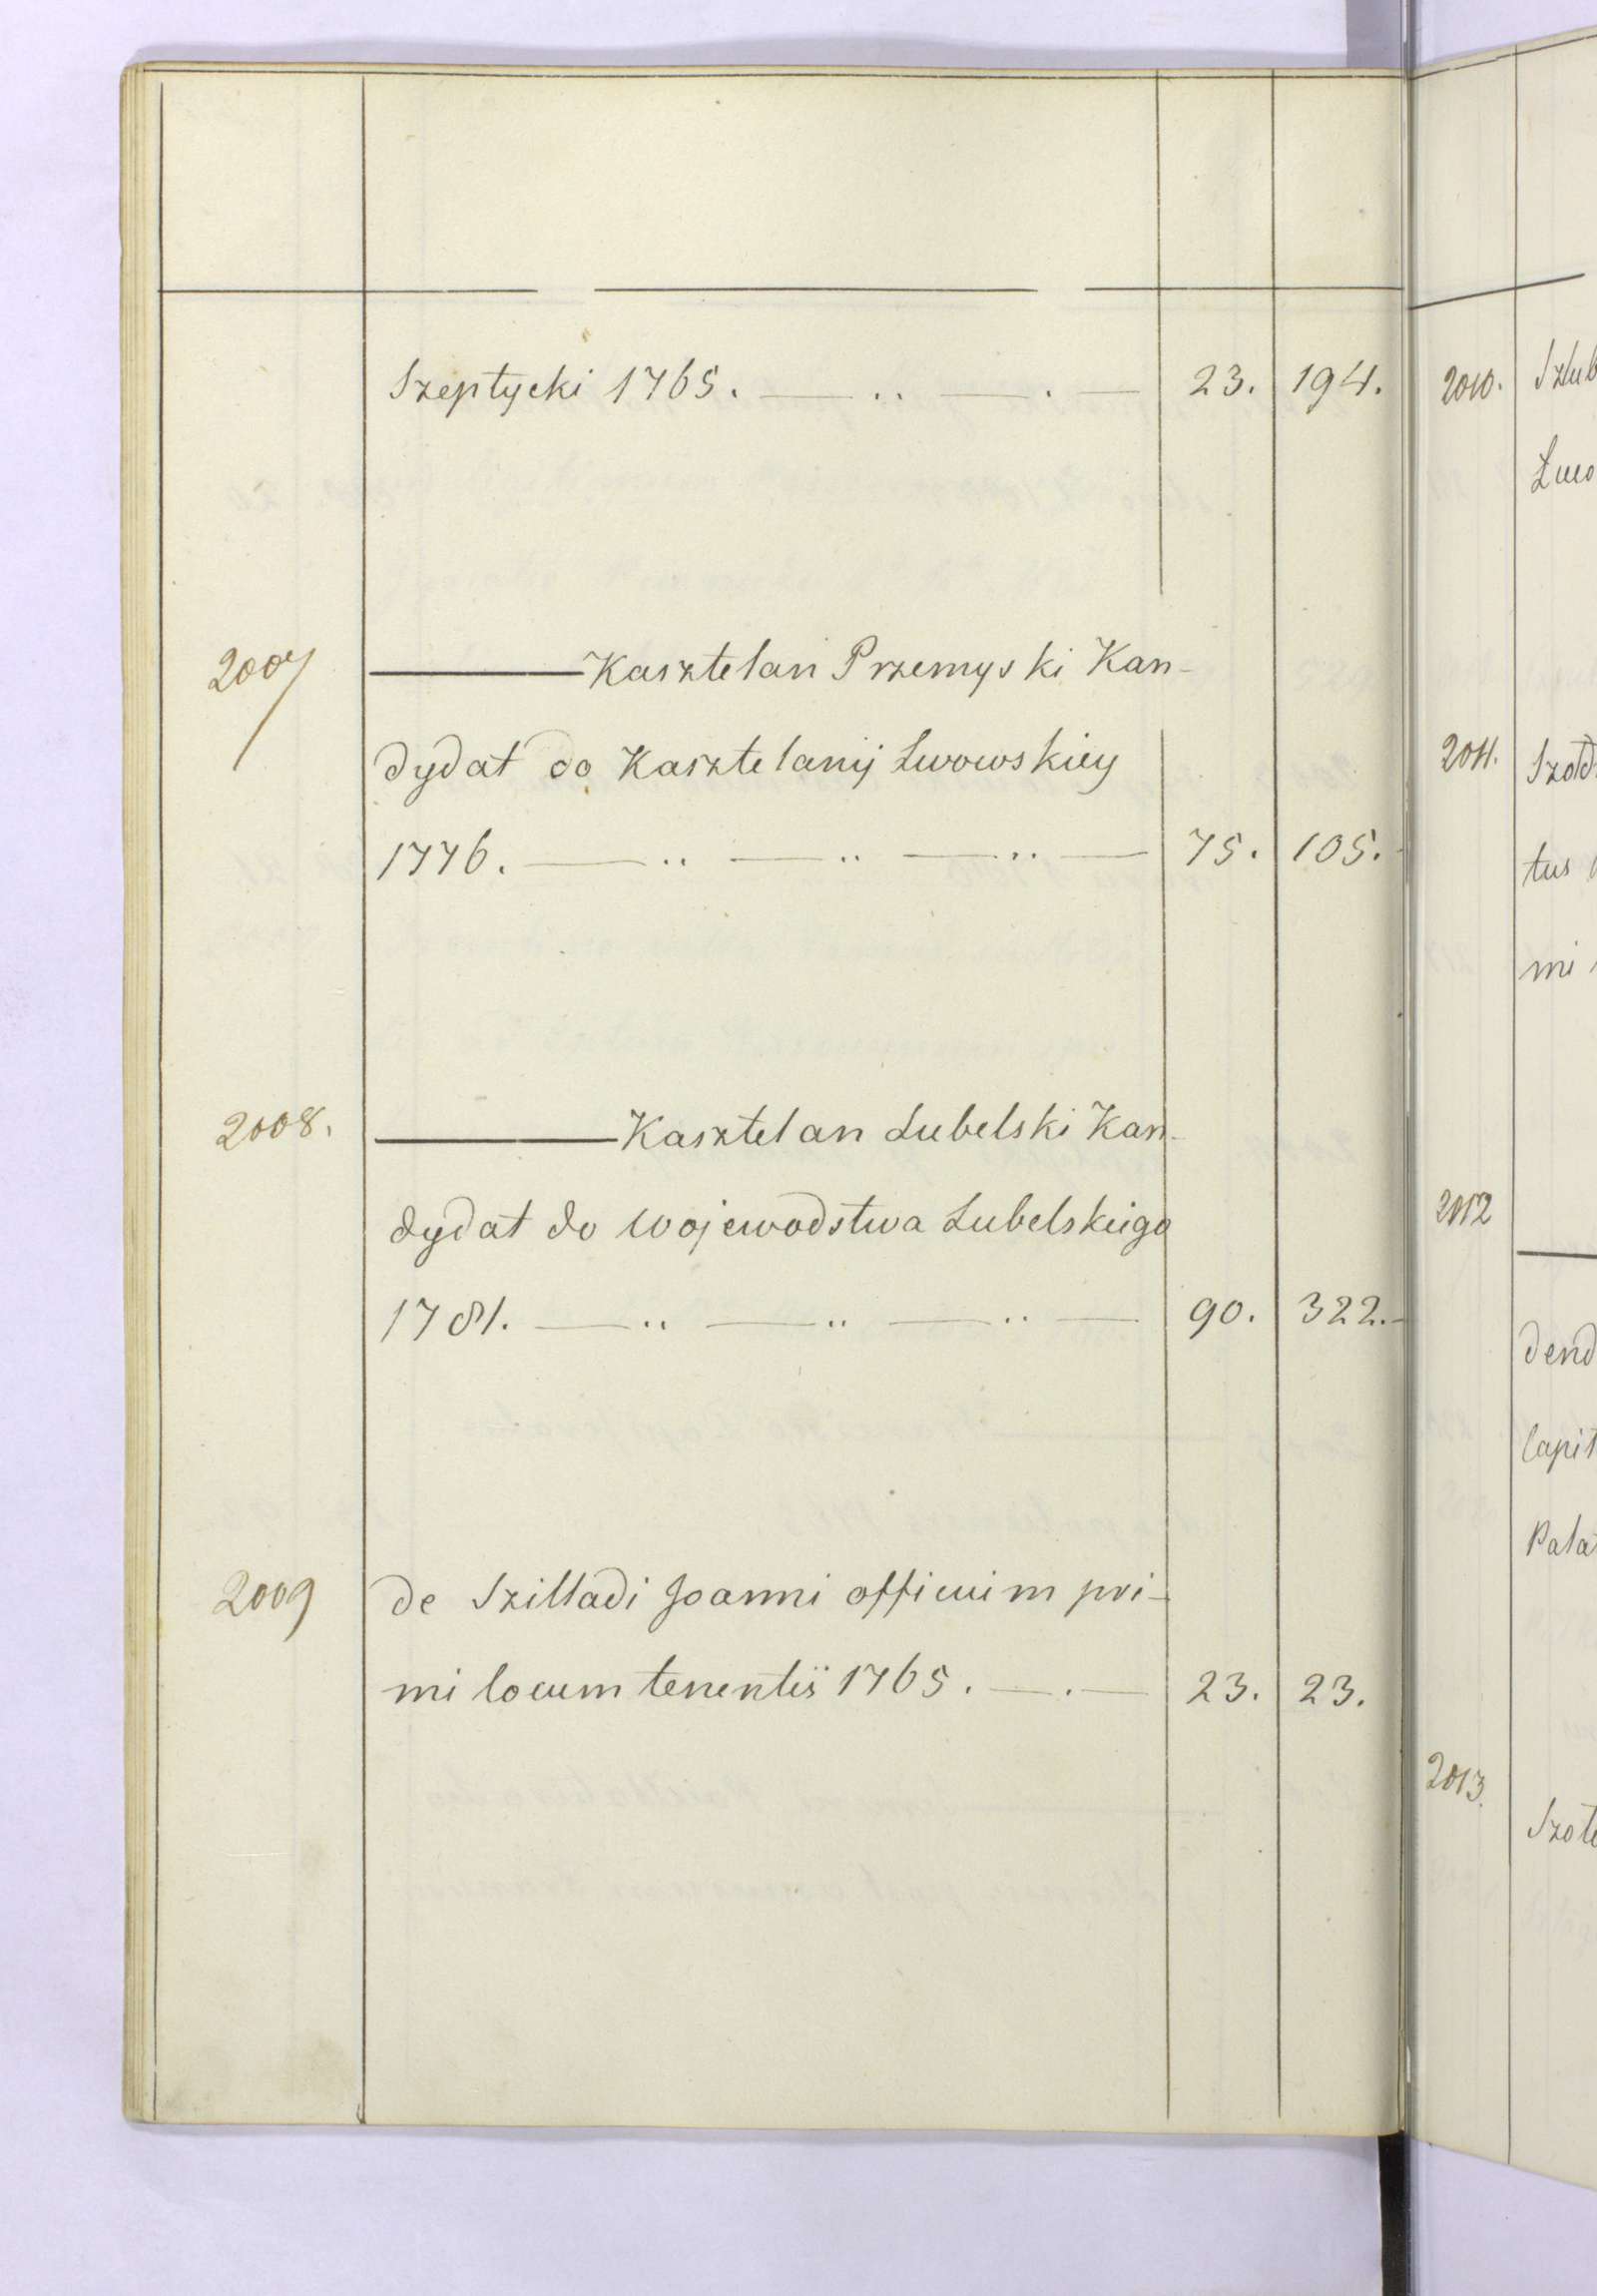 Szeptycki 1765. — .. — . — 23. 194.
2007 — Kasztelan Przemyski Kan-
dydat do Kasztelanij Lwowskiey
1776. — .. — .. — .. — 75. 105.
2008. — Kasztelan Lubelski Kan-
dydat do Wojewodstwa Lubelskiego
1781. — .. — .. — .. — 90. 322.
2009 de Szilladi Joanni officium pri-
mi locum tenentis 1765. — . — 23. 23.
2010.
2011.
tus
mi
2012
dend
Capit
Pala
2013.